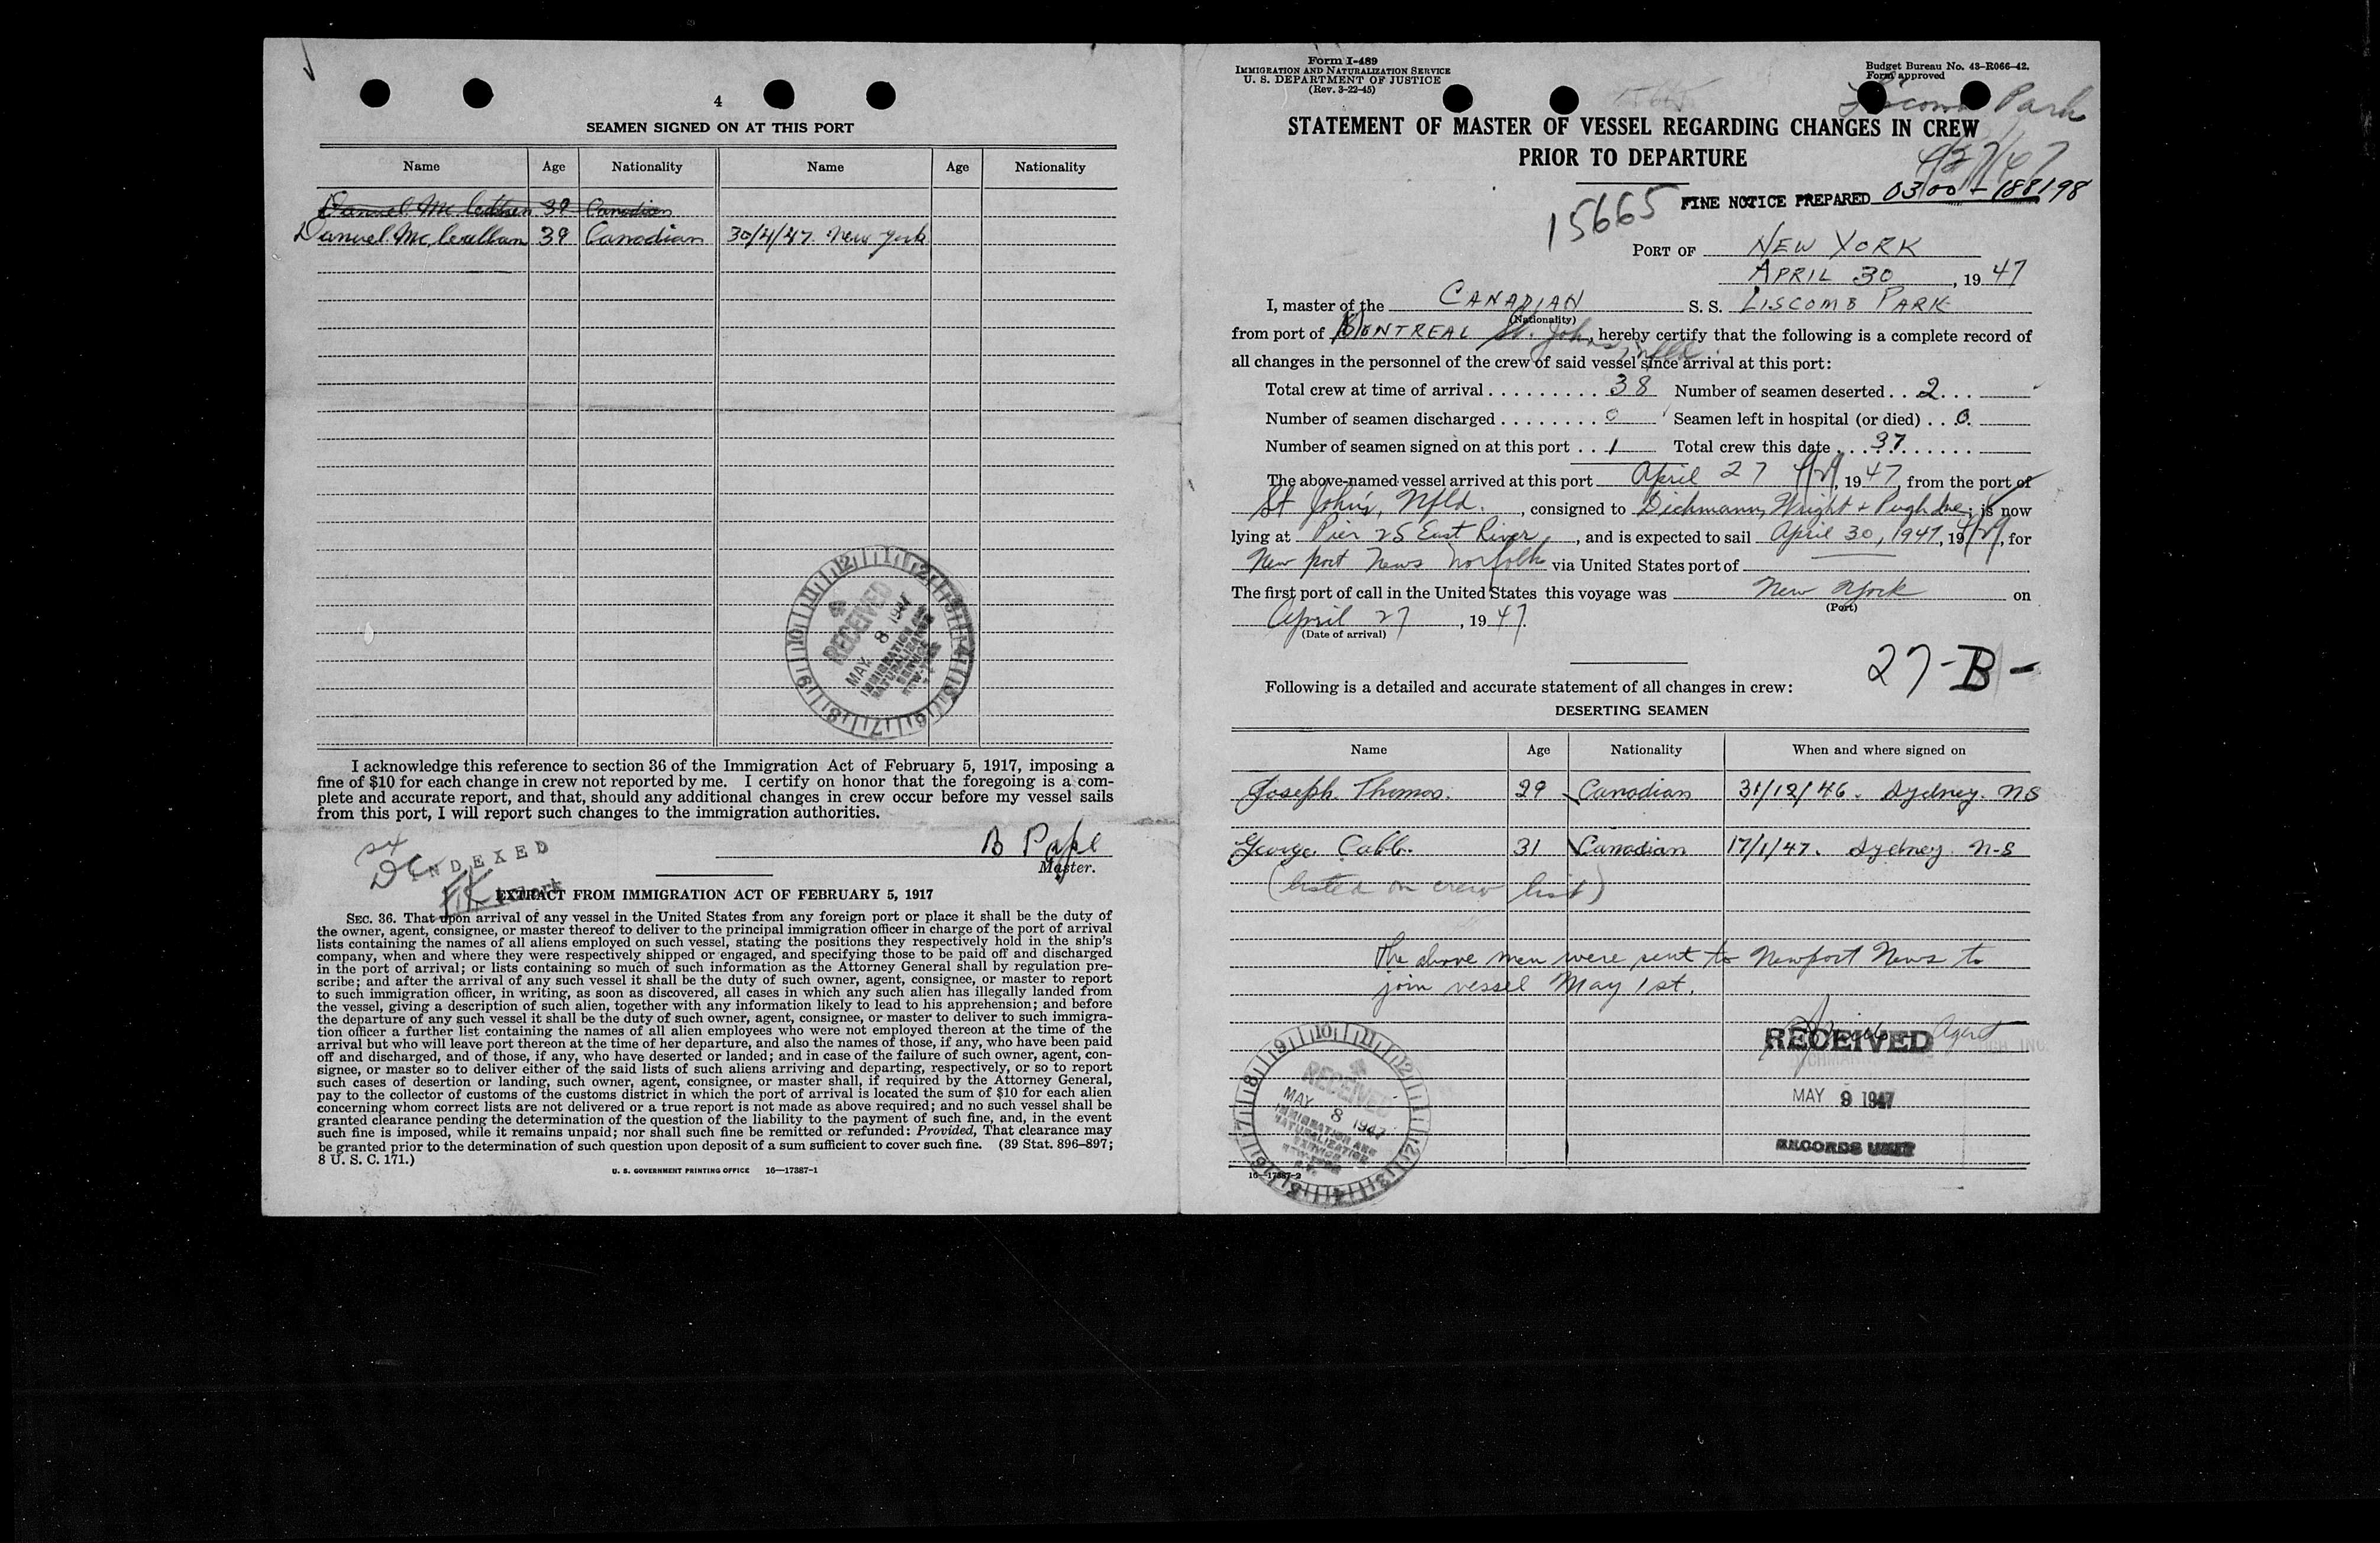 4
SEAMEN SIGNED ON AT THIS PORT
Name Age Nationality Name Age Nationality
Daniel Mc 39 Canadian
Daniel Mc 39 Canadian 30/4/47. New York
RECEIVED
MAY 8 1947
IMMIGRATION AND
NATURALIZATION
SERVICE
I acknowledge this reference to section 36 of the Immigration Act of February 5, 1917, imposing a
fine of $10 for each change in crew not reported by me. I certify on honor that the foregoing is a com-
plete and accurate report, and that, should any additional changes in crew occur before my vessel sails
from this port, I will report such changes to the immigration authorities.
B Pope
Master.
INDEXED
EXTRACT FROM IMMIGRATION ACT OF FEBRUARY 5, 1917
SEC. 36. That upon arrival of any vessel in the United States from any foreign port or place it shall be the duty of
the owner, agent, consignee, or master thereof to deliver to the principal immigration officer in charge of the port of arrival
lists containing the names of all aliens employed on such vessel, stating the positions they respectively hold in the ship's
company, when and where they were respectively shipped or engaged, and specifying those to be paid off and discharged
in the port of arrival; or lists containing so much of such information as the Attorney General shall by regulation pre-
scribe; and after the arrival of any such vessel it shall be the duty of such owner, agent, consignee, or master to report
to such immigration officer, in writing, as soon as discovered, all cases in which any such alien has illegally landed from
the vessel, giving a description of such alien, together with any information likely to lead to his apprehension; and before
the departure of any such vessel it shall be the duty of such owner, agent, consignee, or master to deliver to such immigra-
tion officer a further list containing the names of all alien employees who were not employed thereon at the time of the
arrival but who will leave port thereon at the time of her departure, and also the names of those, if any, who have been paid
off and discharged, and of those, if any, who have deserted or landed; and in case of the failure of such owner, agent, con-
signee, or master so to deliver either of the said lists of such aliens arriving and departing, respectively, or so to report
such cases of desertion or landing, such owner, agent, consignee, or master shall, if required by the Attorney General,
pay to the collector of customs of the customs district in which the port of arrival is located the sum of $10 for each alien
concerning whom correct lists are not delivered or a true report is not made as above required; and no such vessel shall be
granted clearance pending the determination of the question of the liability to the payment of such fine, and, in the event
such fine is imposed, while it remains unpaid; nor shall such fine be remitted or refunded: Provided, That clearance may
be granted prior to the determination of such question upon deposit of a sum sufficient to cover such fine. (39 Stat. 896–897;
8 U. S. C. 171.)
U. S. GOVERNMENT PRINTING OFFICE 16—17387-1
Form I-489
IMMIGRATION AND NATURALIZATION SERVICE
U. S. DEPARTMENT OF JUSTICE
(Rev. 3-22-45)
Budget Bureau No. 43-R066-42.
Form approved
Liscomb Park
STATEMENT OF MASTER OF VESSEL REGARDING CHANGES IN CREW
PRIOR TO DEPARTURE
4/27/47
FINE NOTICE PREPARED 0300-188198
15665
PORT OF NEW YORK
APRIL 30, 1947
I, master of the CANADIAN S. S. LISCOMB PARK
(Nationality)
from port of MONTREAL St. Johns, Nfld., hereby certify that the following is a complete record of
all changes in the personnel of the crew of said vessel since arrival at this port:
Total crew at time of arrival . . . . . . . . . 38 Number of seamen deserted . . 2 . . .
Number of seamen discharged . . . . . . . . 0 Seamen left in hospital (or died) . . 0.
Number of seamen signed on at this port . . 1 Total crew this date . . . 37 . . . . . . . .
The above-named vessel arrived at this port April 27, 1947, from the port of
St John's, Nfld., consigned to Dichmann, Wright & Pugh Inc; is now
lying at Pier 25 East River, and is expected to sail April 30, 1947, 19, for
New port News Norfolk via United States port of
The first port of call in the United States this voyage was New York on
(Port)
April 27, 1947.
(Date of arrival)
27-B-
Following is a detailed and accurate statement of all changes in crew:
DESERTING SEAMEN
Name Age Nationality When and where signed on
Joseph Thomas. 29 Canadian 31/12/46. Sydney. NS
George Cabb. 31 Canadian 17/1/47. Sydney N-S
(listed on crew list)
The above men were sent to Newport News to
join vessel May 1st.
Agent
RECEIVED
MAY 9 1947
RECORDS UNIT
RECEIVED
MAY 8 1947
IMMIGRATION AND
NATURALIZATION
SERVICE
NEW YORK
N.Y.
16—17387-2